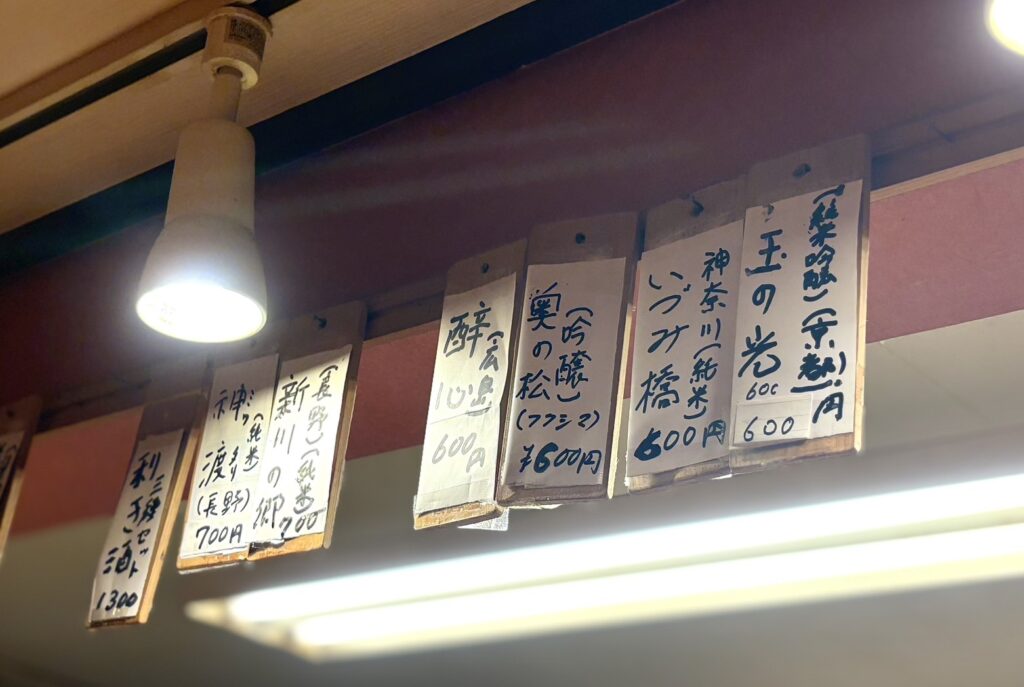 (純米吟醸)(京都)
玉の光
600
円
600
神奈川(純米)
いづみ橋
600円
(吟醸)
奥の松
(フクシマ)
¥600円
(広島)
酔心
600円
(長野)(純米)
新川の郷
700
(純米)
神渡
(長野)
700円
三種セット
利き酒
1300